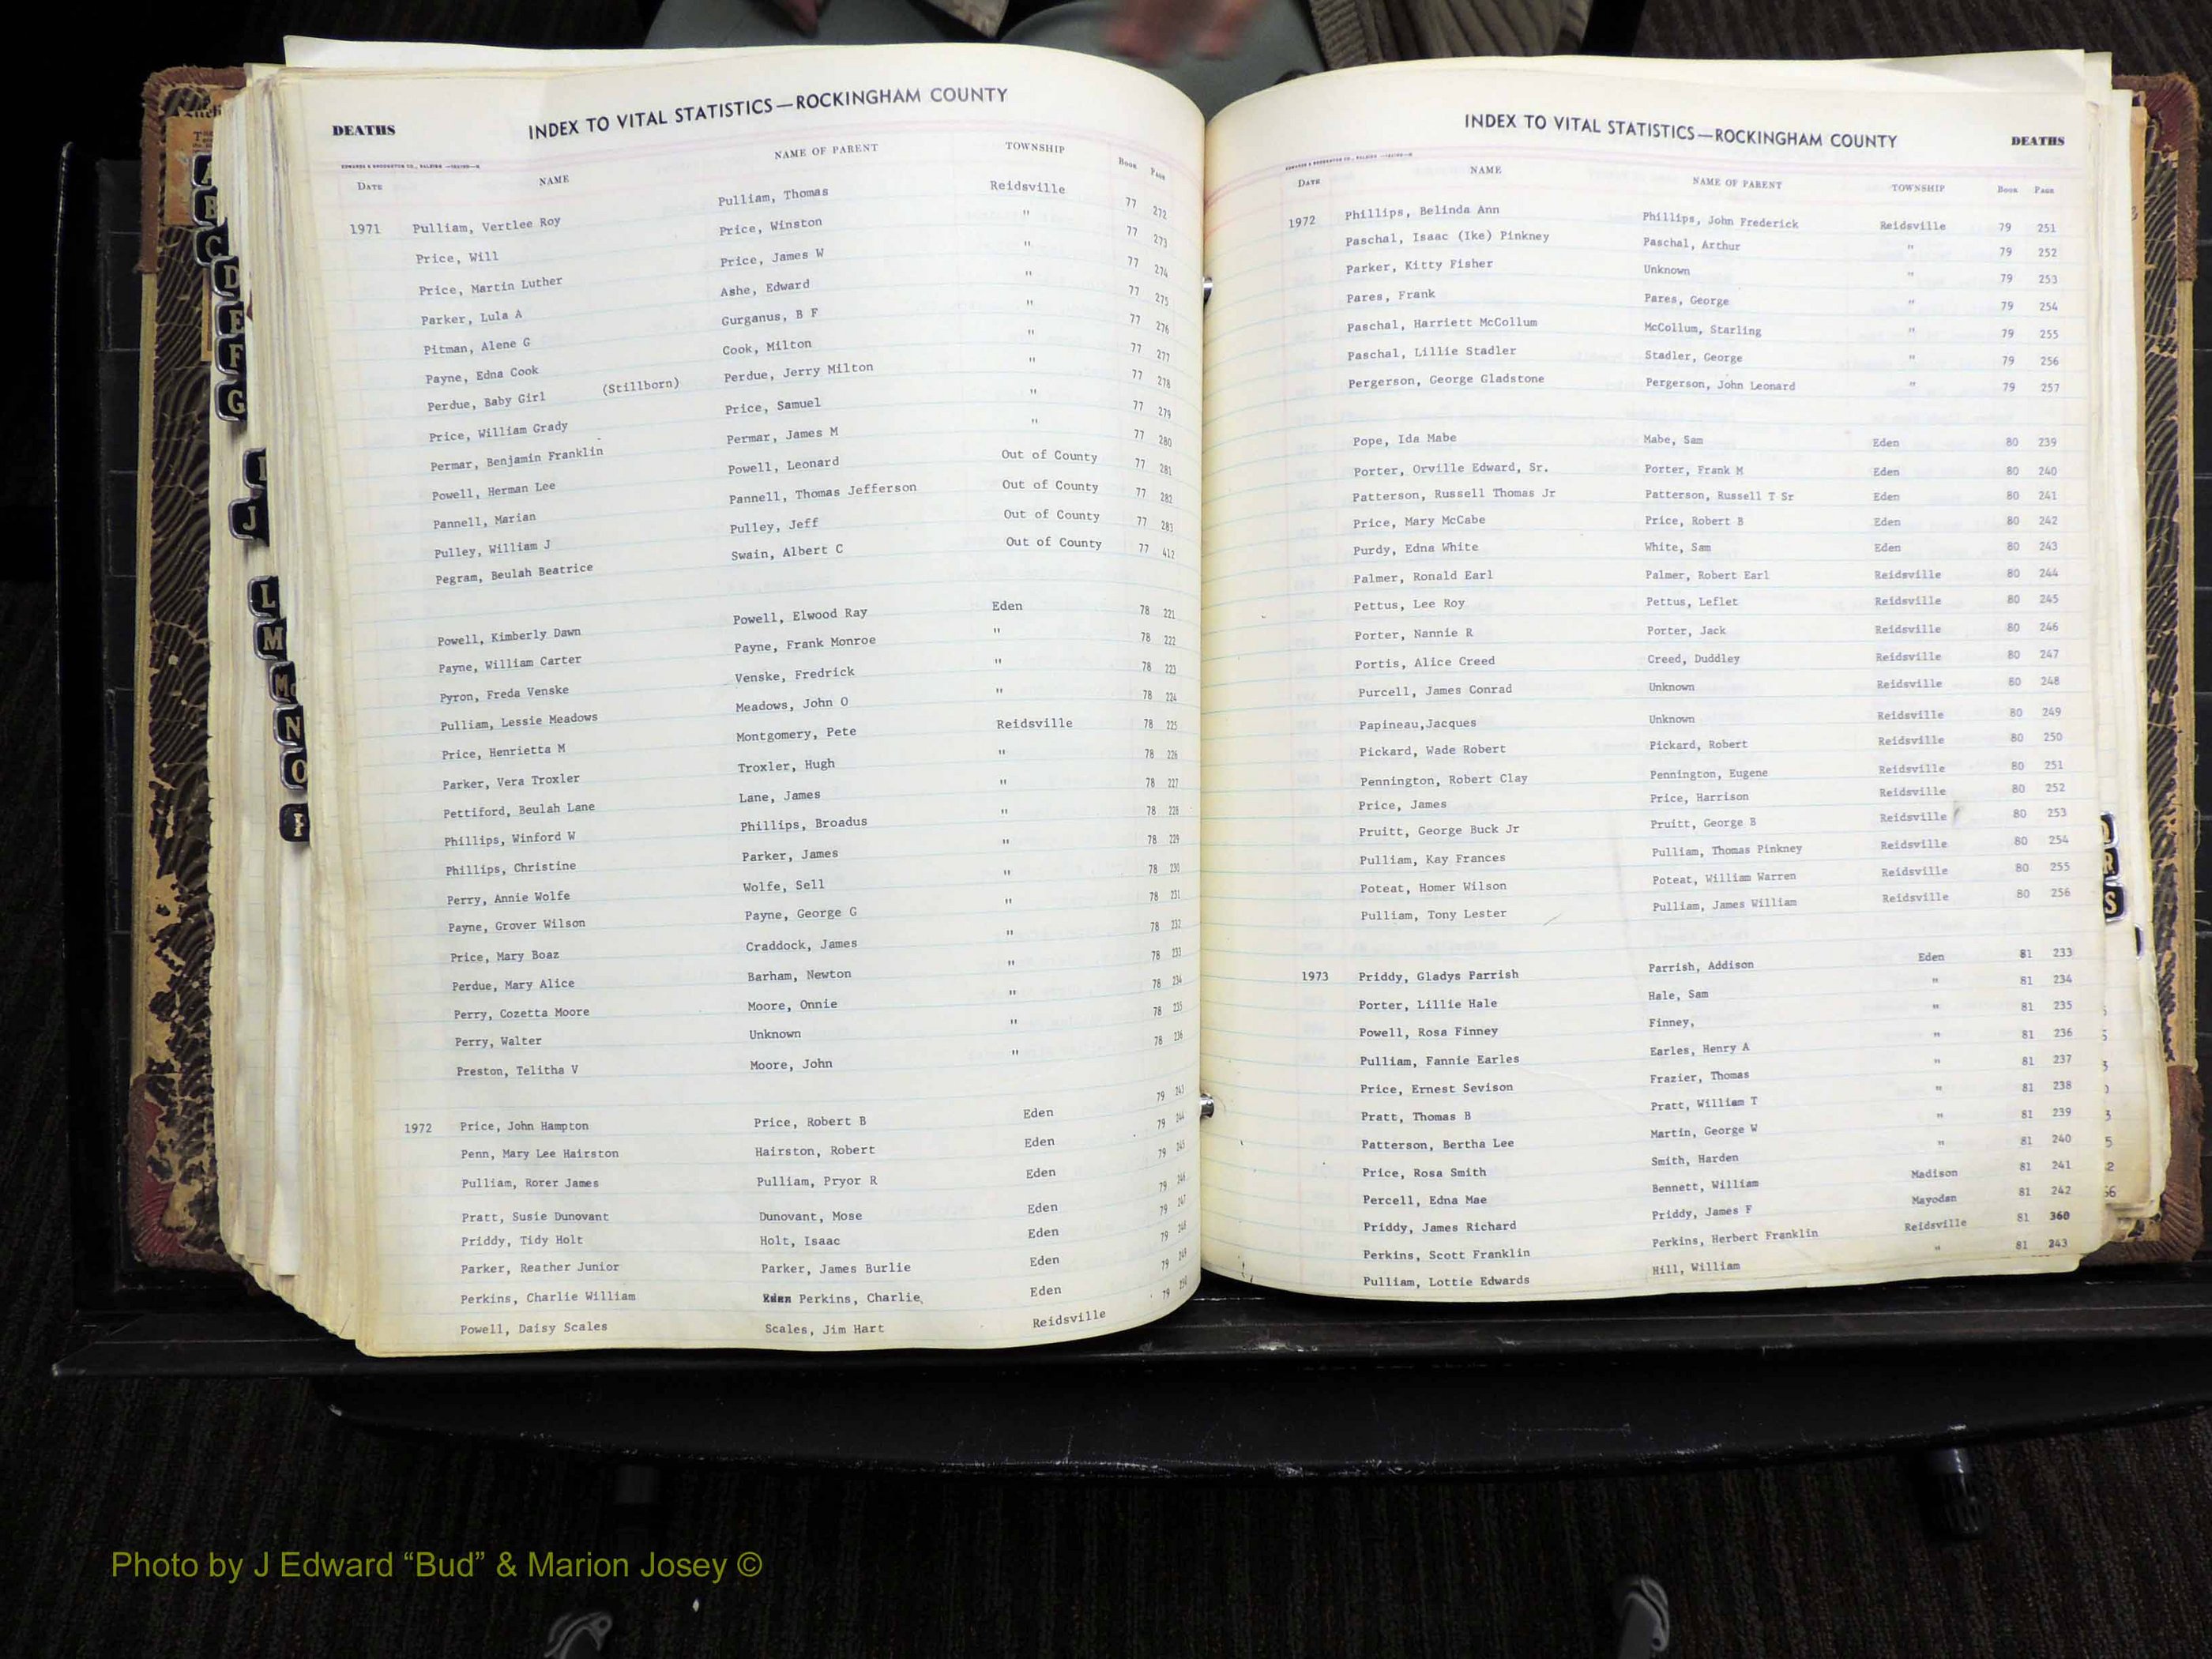 DEATHS
INDEX TO VITAL STATISTICS—ROCKINGHAM COUNTY
DATE NAME NAME OF PARENT TOWNSHIP BOOK PAGE
1971 Pulliam, Vertlee Roy Pulliam, Thomas Reidsville 77 272
Price, Will Price, Winston " 77 273
Price, Martin Luther Price, James W " 77 274
Parker, Lula A Ashe, Edward " 77 275
Pitman, Alene G Gurganus, B F " 77 276
Payne, Edna Cook Cook, Milton " 77 277
Perdue, Baby Girl (Stillborn) Perdue, Jerry Milton " 77 278
Price, William Grady Price, Samuel " 77 279
Permar, Benjamin Franklin Permar, James M " 77 280
Powell, Herman Lee Powell, Leonard Out of County 77 281
Pannell, Marian Pannell, Thomas Jefferson Out of County 77 282
Pulley, William J Pulley, Jeff Out of County 77 283
Pegram, Beulah Beatrice Swain, Albert C Out of County 77 412
Powell, Kimberly Dawn Powell, Elwood Ray Eden 78 221
Payne, William Carter Payne, Frank Monroe " 78 222
Pyron, Freda Venske Venske, Fredrick " 78 223
Pulliam, Lessie Meadows Meadows, John O " 78 224
Price, Henrietta M Montgomery, Pete Reidsville 78 225
Parker, Vera Troxler Troxler, Hugh " 78 226
Pettiford, Beulah Lane Lane, James " 78 227
Phillips, Winford W Phillips, Broadus " 78 228
Phillips, Christine Parker, James " 78 229
Perry, Annie Wolfe Wolfe, Sell " 78 230
Payne, Grover Wilson Payne, George G " 78 231
Price, Mary Boaz Craddock, James " 78 232
Perdue, Mary Alice Barham, Newton " 78 233
Perry, Cozetta Moore Moore, Onnie " 78 234
Perry, Walter Unknown " 78 235
Preston, Telitha V Moore, John " 78 236
1972 Price, John Hampton Price, Robert B Eden 79 243
Penn, Mary Lee Hairston Hairston, Robert Eden 79 244
Pulliam, Rorer James Pulliam, Pryor R Eden 79 245
Pratt, Susie Dunovant Dunovant, Mose Eden 79 246
Priddy, Tidy Holt Holt, Isaac Eden 79 247
Parker, Reather Junior Parker, James Burlie Eden 79 248
Perkins, Charlie William Perkins, Charlie Eden 79 249
Powell, Daisy Scales Scales, Jim Hart Reidsville 79 250
INDEX TO VITAL STATISTICS—ROCKINGHAM COUNTY
DEATHS
DATE NAME NAME OF PARENT TOWNSHIP BOOK PAGE
1972 Phillips, Belinda Ann Phillips, John Frederick Reidsville 79 251
Paschal, Isaac (Ike) Pinkney Paschal, Arthur " 79 252
Parker, Kitty Fisher Unknown " 79 253
Pares, Frank Pares, George " 79 254
Paschal, Harriett McCollum McCollum, Starling " 79 255
Paschal, Lillie Stadler Stadler, George " 79 256
Pergerson, George Gladstone Pergerson, John Leonard " 79 257
Pope, Ida Mabe Mabe, Sam Eden 80 239
Porter, Orville Edward, Sr. Porter, Frank M Eden 80 240
Patterson, Russell Thomas Jr Patterson, Russell T Sr Eden 80 241
Price, Mary McCabe Price, Robert B Eden 80 242
Purdy, Edna White White, Sam Eden 80 243
Palmer, Ronald Earl Palmer, Robert Earl Reidsville 80 244
Pettus, Lee Roy Pettus, Leflet Reidsville 80 245
Porter, Nannie R Porter, Jack Reidsville 80 246
Portis, Alice Creed Creed, Duddley Reidsville 80 247
Purcell, James Conrad Unknown Reidsville 80 248
Papineau,Jacques Unknown Reidsville 80 249
Pickard, Wade Robert Pickard, Robert Reidsville 80 250
Pennington, Robert Clay Pennington, Eugene Reidsville 80 251
Price, James Price, Harrison Reidsville 80 252
Pruitt, George Buck Jr Pruitt, George B Reidsville 80 253
Pulliam, Kay Frances Pulliam, Thomas Pinkney Reidsville 80 254
Poteat, Homer Wilson Poteat, William Warren Reidsville 80 255
Pulliam, Tony Lester Pulliam, James William Reidsville 80 256
1973 Priddy, Gladys Parrish Parrish, Addison Eden 81 233
Porter, Lillie Hale Hale, Sam " 81 234
Powell, Rosa Finney Finney, " 81 235
Pulliam, Fannie Earles Earles, Henry A " 81 236
Price, Ernest Sevison Frazier, Thomas " 81 237
Pratt, Thomas B Pratt, William T " 81 238
Patterson, Bertha Lee Martin, George W " 81 239
Price, Rosa Smith Smith, Harden " 81 240
Percell, Edna Mae Bennett, William Madison 81 241
Priddy, James Richard Priddy, James F Mayodan 81 242
Perkins, Scott Franklin Perkins, Herbert Franklin Reidsville 81 360
Pulliam, Lottie Edwards Hill, William " 81 243
A
B
C
D
E
F
G
J
L
M
Mc
N
O
R
S
Photo by J Edward “Bud” & Marion Josey ©